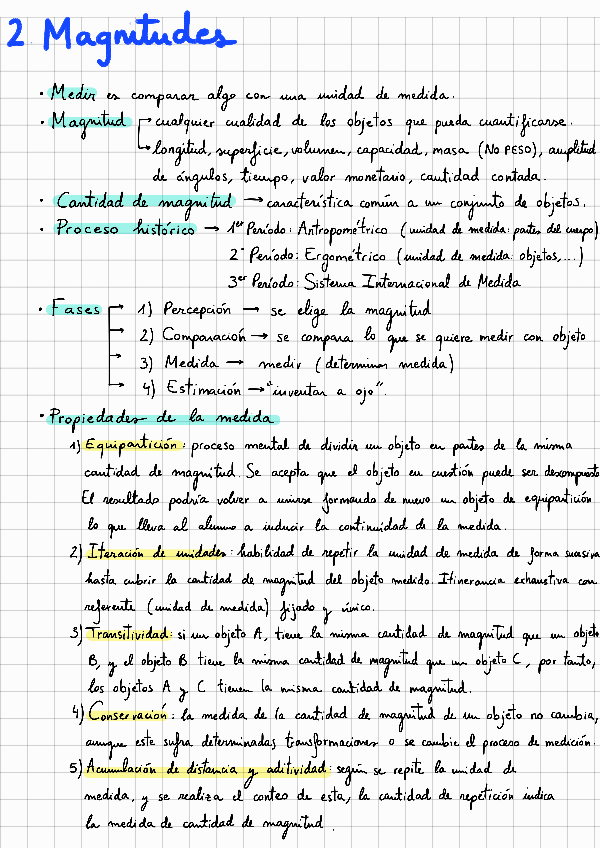 2 Magnitudes
· Medir es comparar algo con una unidad de medida.
· Magnitud → cualquier cualidad de los objetos que pueda cuantificarse.
→ longitud, superficie, volumen, capacidad, masa (NO PESO), amplitud
de ángulos, tiempo, valor monetario, cantidad contada.
· Cantidad de magnitud → característica común a un conjunto de objetos.
· Proceso histórico → 1er Período: Antropométrico (unidad de medida: partes del cuerpo)
2º Período: Ergométrico (unidad de medida: objetos,...)
3er Período: Sistema Internacional de Medida
· Fases → 1) Percepción → se elige la magnitud
→ 2) Comparación → se compara lo que se quiere medir con objeto
→ 3) Medida → medir (determinar medida)
→ 4) Estimación → "inventar a ojo".
· Propiedades de la medida
1) Equipartición: proceso mental de dividir un objeto en partes de la misma
cantidad de magnitud. Se acepta que el objeto en cuestión puede ser descompuesto
El resultado podría volver a unirse formando de nuevo un objeto de equipartición
lo que lleva al alumno a inducir la continuidad de la medida.
2) Iteración de unidades: habilidad de repetir la unidad de medida de forma sucesiva
hasta cubrir la cantidad de magnitud del objeto medido. Itinerancia exhaustiva con
referente (unidad de medida) fijado y único.
3) Transitividad: si un objeto A, tiene la misma cantidad de magnitud que un objeto
B, y el objeto B tiene la misma cantidad de magnitud que un objeto C, por tanto,
los objetos A y C tienen la misma cantidad de magnitud.
4) Conservación: la medida de la cantidad de magnitud de un objeto no cambia,
aunque este sufra determinadas transformaciones o se cambie el proceso de medición.
5) Acumulación de distancia y aditividad: según se repite la unidad de
medida, y se realiza el conteo de esta, la cantidad de repetición indica
la medida de cantidad de magnitud.